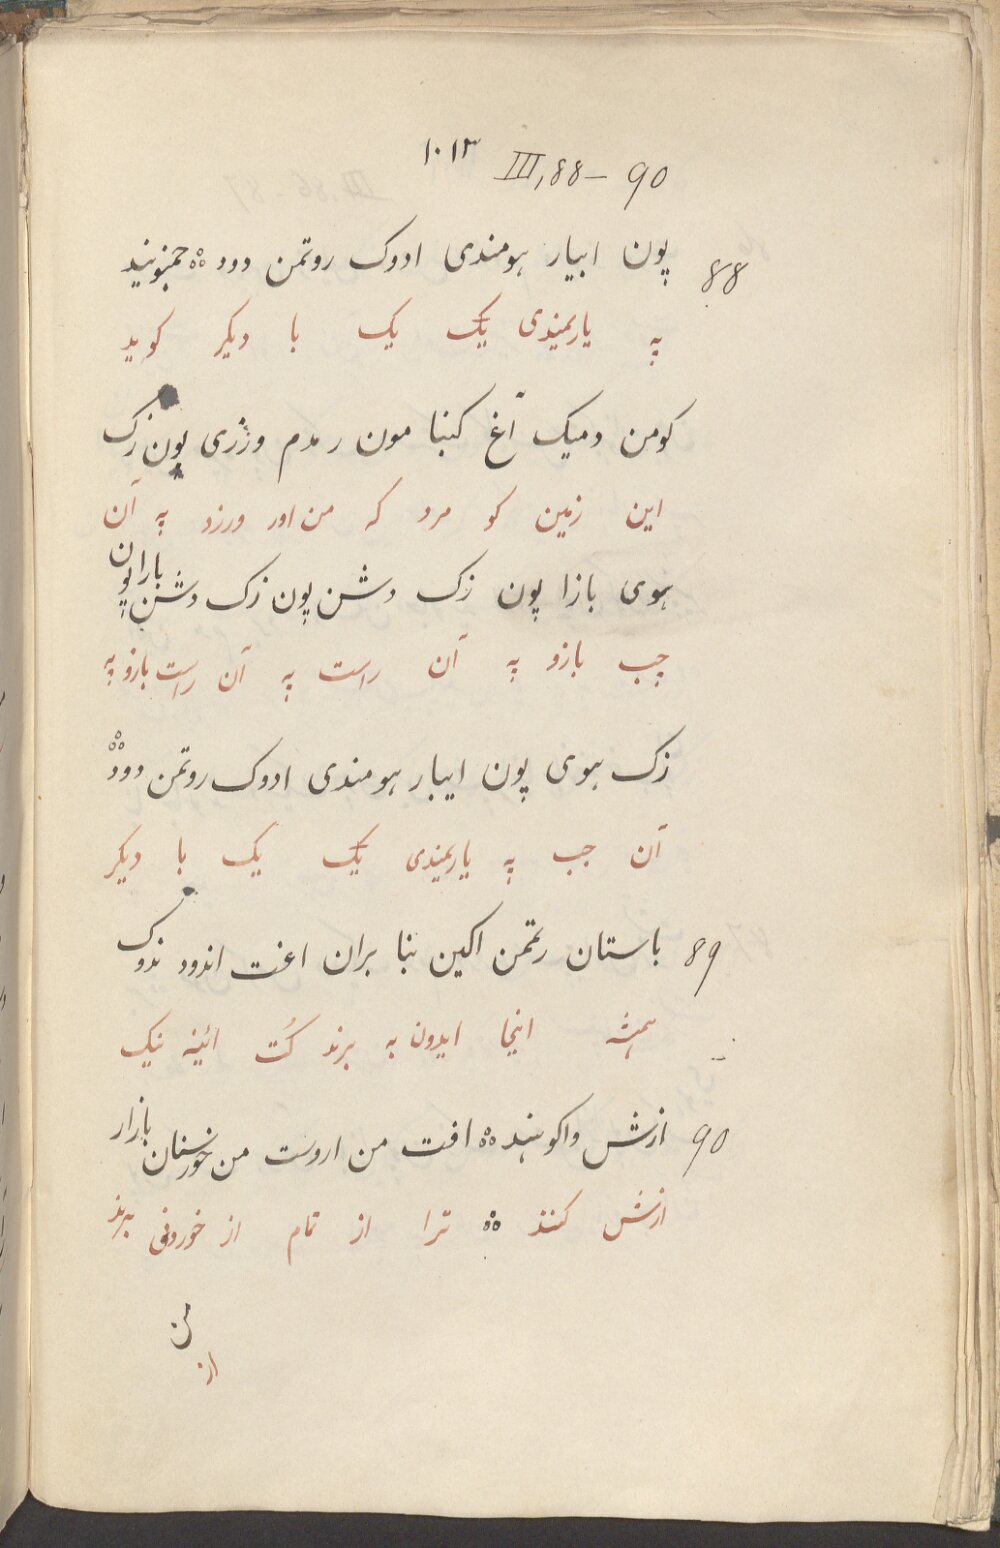 ١٠١٣ III, 88 – 90
88 پون ابیار هومندی ادوک روتمن دود ؞ جمنونید
په یاریمندی یک یک با دیکر کوید
کومن دمیک آغ کبنا مون ر مدم وزری پون زک
این زمین کو مرد که من اور ورزد په آن
هوی بازا پون زک دشن پون زک دشن بازا پون
چپ بازو په آن راست په آن راست بازو په
زک هوی پون ایبار هومندی ادوک روتمن دود ؞
آن جپ په یاریمندی یک یک با دیکر
89 باستان رتمن اکین بنا بران اغت اندود ندوک
همیشه اینجا ایدون به برند کُت ائینه نیک
90 ازش واکونیند ؞ افت من اروست من خورسنان بازار
ازش کنند ؞ ترا از تمام از خوردنی برند
لن
از